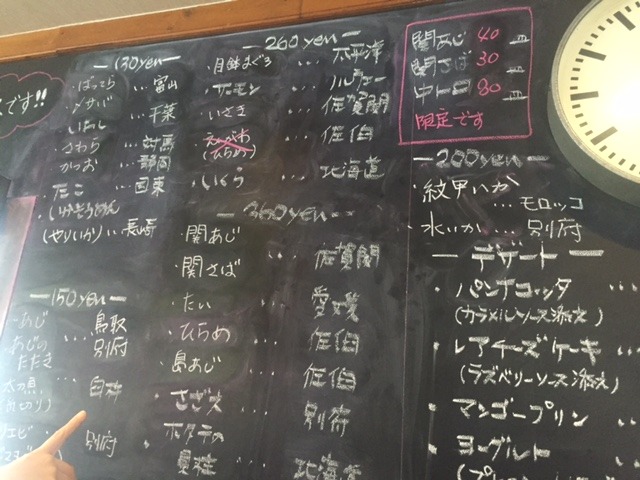 です!!
130yen
・ばってら … 富山
・〆サバ
いわし … 千葉
・さわら … 対馬
かつお … 静岡
・たこ … 国東
・いかそうめん
(やりいか) … 長崎
150yen
あじ … 鳥取
あじの 別府
たたき
太刀魚 …
別府
260yen
・目鉢まぐろ … 太平洋
・サーモン … ノルウェー
・いさき … 佐賀関
えんがわ
(ひらめ) … 佐伯
・いくら … 北海道
360yen
・関あじ
・関さば … 佐賀関
・たい … 愛媛
・ひらめ … 佐伯
島あじ … 佐伯
・さざえ … 別府
・ホタテの
貝柱 … 北海道
関あじ 40 皿
関さば 30 皿
中トロ 80 皿
限定です
200yen
紋甲いか
… モロッコ
水いか … 別府
デザート
・パンナコッタ …
(カラメルソース添え)
・レアチーズケーキ
(ラズベリーソース添え)
・マンゴープリン
・ヨーグルト …